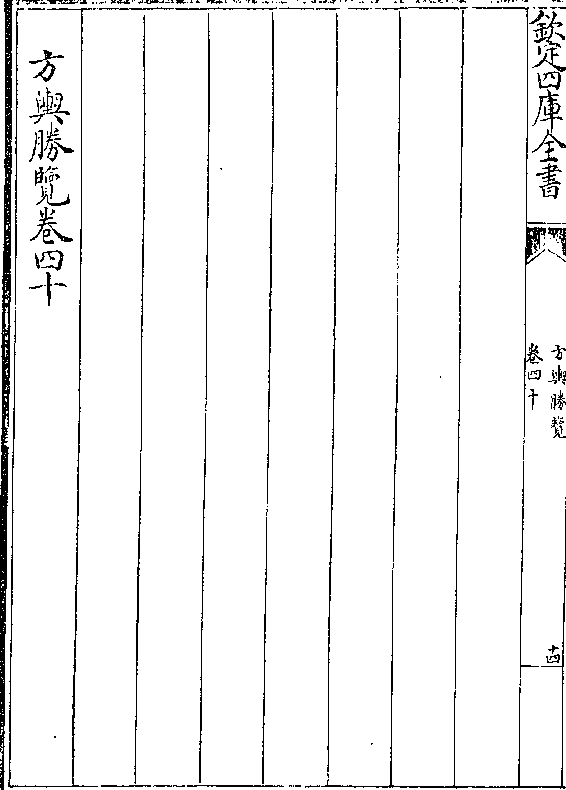 欽定四庫全書
方輿勝覽
卷四十
十四
方輿勝覽卷四十